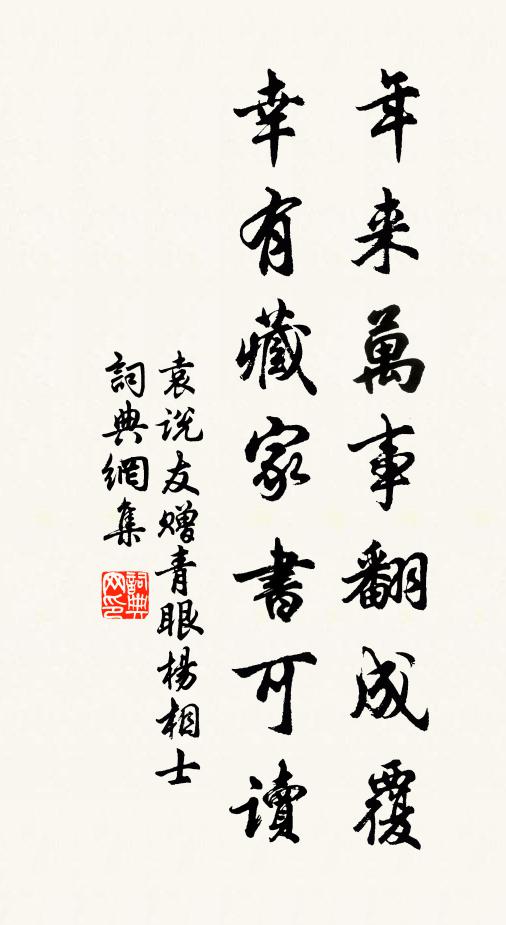 年来萬事翻成覆
幸有藏家書可讀
袁说友赠青眼楊相士
詞典網集
詞典网印